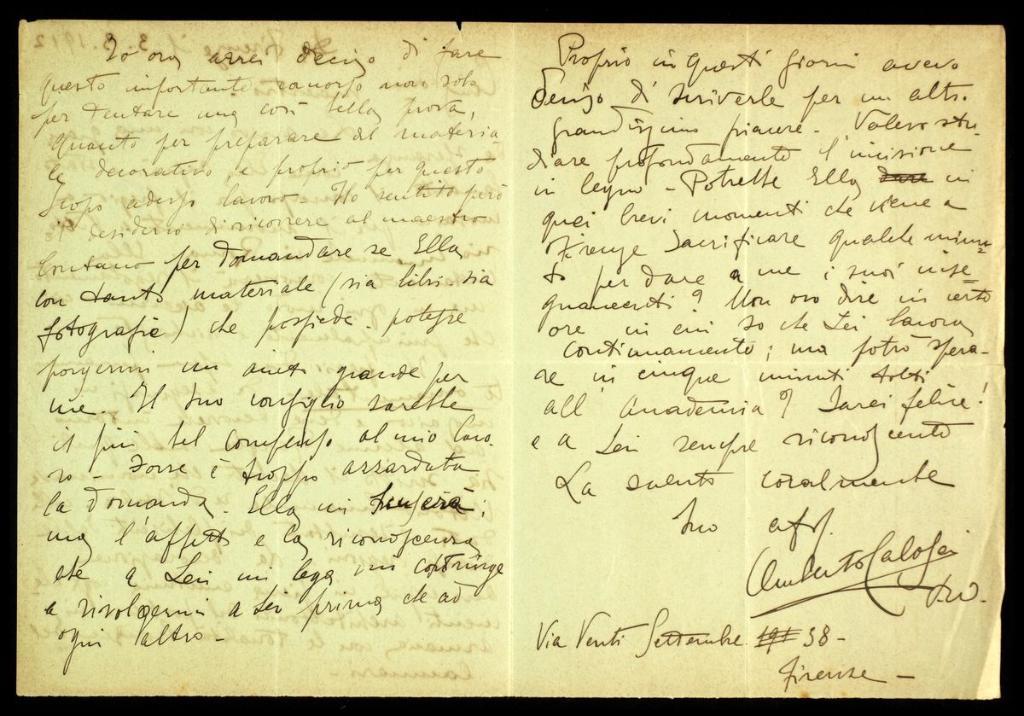 Io ora avrei deciso di fare
questo importante concorso non solo
per tentare una così bella prova,
quanto per preparare del materia
le decorativo e proprio per questo
scopo adesso lavoro. Ho sentito però
il desiderio di ricorrere al maestro
lontano per domandare se Ella,
con tanto materiale (sia libri, sia
fotografie) che possiede potesse
porgermi un aiuto grande per
me. Il Suo consiglio sarebbe
il più bel compenso al mio lavo
ro - Forse è troppo azzardata
la domanda. Ella mi scuserà;
ma l'affetto e la riconoscenza
che a Lei mi lega mi costringe
a rivolgermi a Lei prima che ad
ogni altro -
Proprio in questi giorni avevo
deciso di scriverle per un altro
grandissimo piacere - Volevo stu-
diare profondamente l'incisione
in legno - Potrebbe Ella dare in
quei brevi momenti che viene a
Firenze sacrificare qualche minu-
to per dare a me i suoi inse
gnamenti? Non oso dire in certe
ore in cui so che Lei lavora
continuamente; ma potrò spera-
re in cinque minuti tolti
all'Accademia? Sarei felice!
e a Lei sempre riconoscente
La saluto coralmente
Suo aff.
Umberto Calosci
Via Venti Settembre 38 -
Firenze -